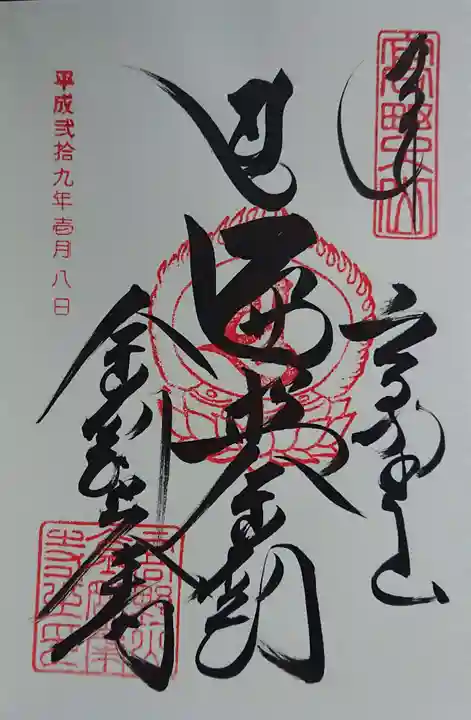 奉拝
高野山
高野山
遍照金剛
金剛峯寺
平成弐拾九年壱月八日